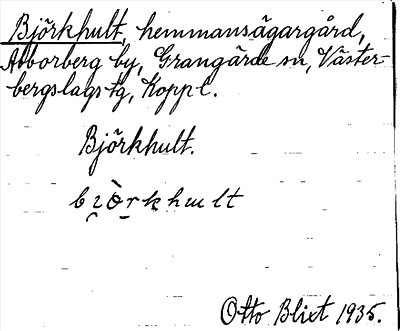 Björkhult, hemmansägargård,
Abborberg by, Grangärde sn, Väster-
bergslags tg, Kopp l.
Björkhult.
Otto Blixt 1935.